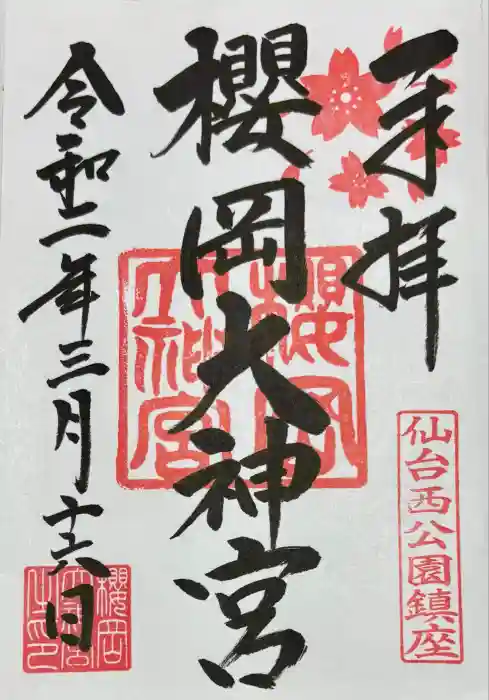 奉拝
仙台西公園鎮座
櫻岡大神宮
櫻岡
大神宮
令和二年三月十六日
櫻岡
之印